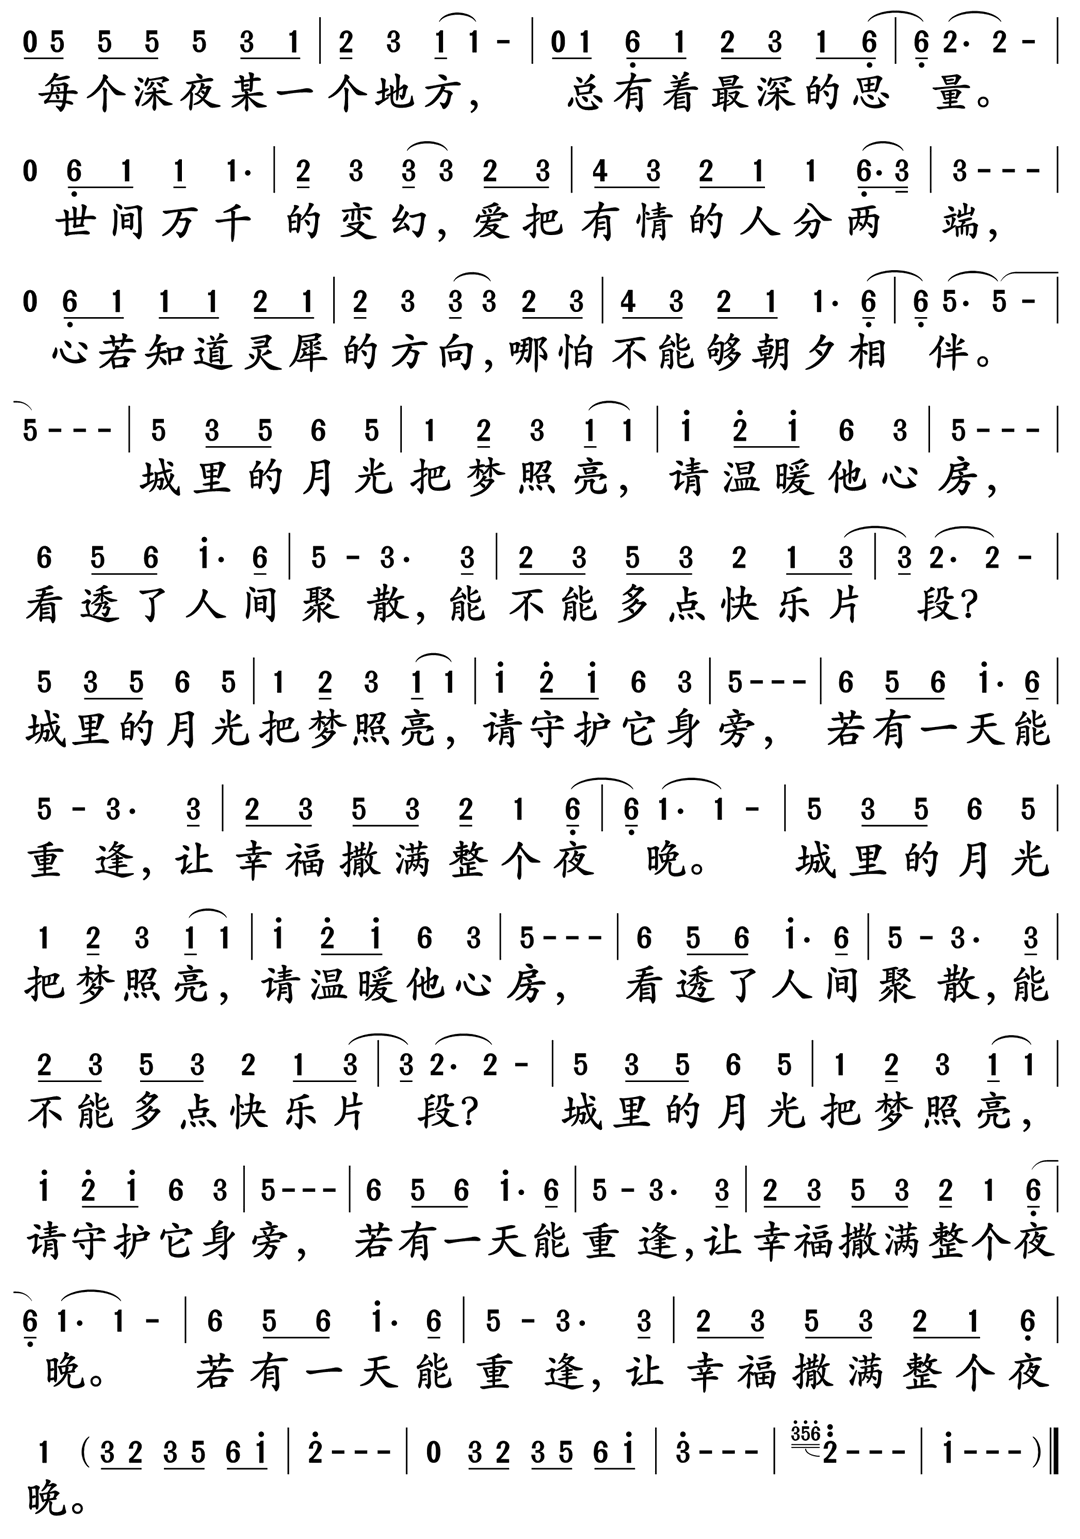 0 5 5 5 5 3 1 | 2 3 1 1 - | 0 1 6 1 2 3 1 6 | 6 2· 2 - |
每个深夜某一个地方, 总有着最深的思 量。
0 6 1 1 1· | 2 3 3 3 2 3 | 4 3 2 1 1 6·3 | 3 - - - |
世间万千 的变幻, 爱把有情的人分两 端,
0 6 1 1 1 2 1 | 2 3 3 3 2 3 | 4 3 2 1 1· 6 | 6 5· 5 - |
心若知道灵犀的方向, 哪怕不能够朝夕相 伴。
5 - - - | 5 3 5 6 5 | 1 2 3 1 1 | i 2 i 6 3 | 5 - - - |
城里的月光把梦照亮, 请温暖他心房,
6 5 6 i· 6 | 5 - 3· 3 | 2 3 5 3 2 1 3 | 3 2· 2 - |
看透了人间聚 散, 能不能多点快乐片 段?
5 3 5 6 5 | 1 2 3 1 1 | i 2 i 6 3 | 5 - - - | 6 5 6 i· 6 |
城里的月光把梦照亮, 请守护它身旁, 若有一天能
5 - 3· 3 | 2 3 5 3 2 1 6 | 6 1· 1 - | 5 3 5 6 5 |
重 逢, 让幸福撒满整个夜 晚。 城里的月光
1 2 3 1 1 | i 2 i 6 3 | 5 - - - | 6 5 6 i· 6 | 5 - 3· 3 |
把梦照亮, 请温暖他心房, 看透了人间聚 散, 能
2 3 5 3 2 1 3 | 3 2· 2 - | 5 3 5 6 5 | 1 2 3 1 1 |
不能多点快乐片 段? 城里的月光把梦照亮,
i 2 i 6 3 | 5 - - - | 6 5 6 i· 6 | 5 - 3· 3 | 2 3 5 3 2 1 6 |
请守护它身旁, 若有一天能重 逢, 让幸福撒满整个夜
6 1· 1 - | 6 5 6 i· 6 | 5 - 3· 3 | 2 3 5 3 2 1 6 |
晚。 若有一天能重 逢, 让幸福撒满整个夜
1 (3 2 3 5 6 i | 2 - - - | 0 3 2 3 5 6 i | 3 - - - | 356 2 - - - | i - - - )‖
晚。